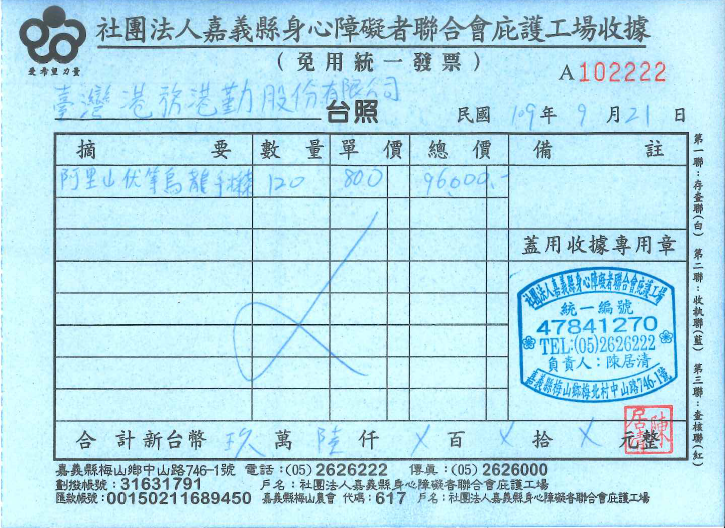 社團法人嘉義縣身心障礙者聯合會庇護工場收據
愛希望力量
(免用統一發票)
A102222
臺灣港務港勤股份有限公司 台照
民國 109 年 9 月 21 日
摘要 數量 單價 總價 備註
阿里山 烏龍 120 800 96,000.-
蓋用收據專用章
社團法人嘉義縣身心障礙者聯合會庇護工場
統一編號
47841270
TEL:(05)2626222
負責人:陳居清
嘉義縣梅山鄉梅北村中山路746-1號
合計新台幣 玖 萬 陸 仟 X 百 X 拾 X 元整
嘉義縣梅山鄉中山路746-1號 電話:(05) 2626222 傳真:(05) 2626000
劃撥帳號:31631791 戶名:社團法人嘉義縣身心障礙者聯合會庇護工場
匯款帳號:00150211689450 嘉義縣梅山農會 代碼:617 戶名:社團法人嘉義縣身心障礙者聯合會庇護工場
第一聯:存查聯(白) 第二聯:收執聯(藍) 第三聯:查核聯(紅)